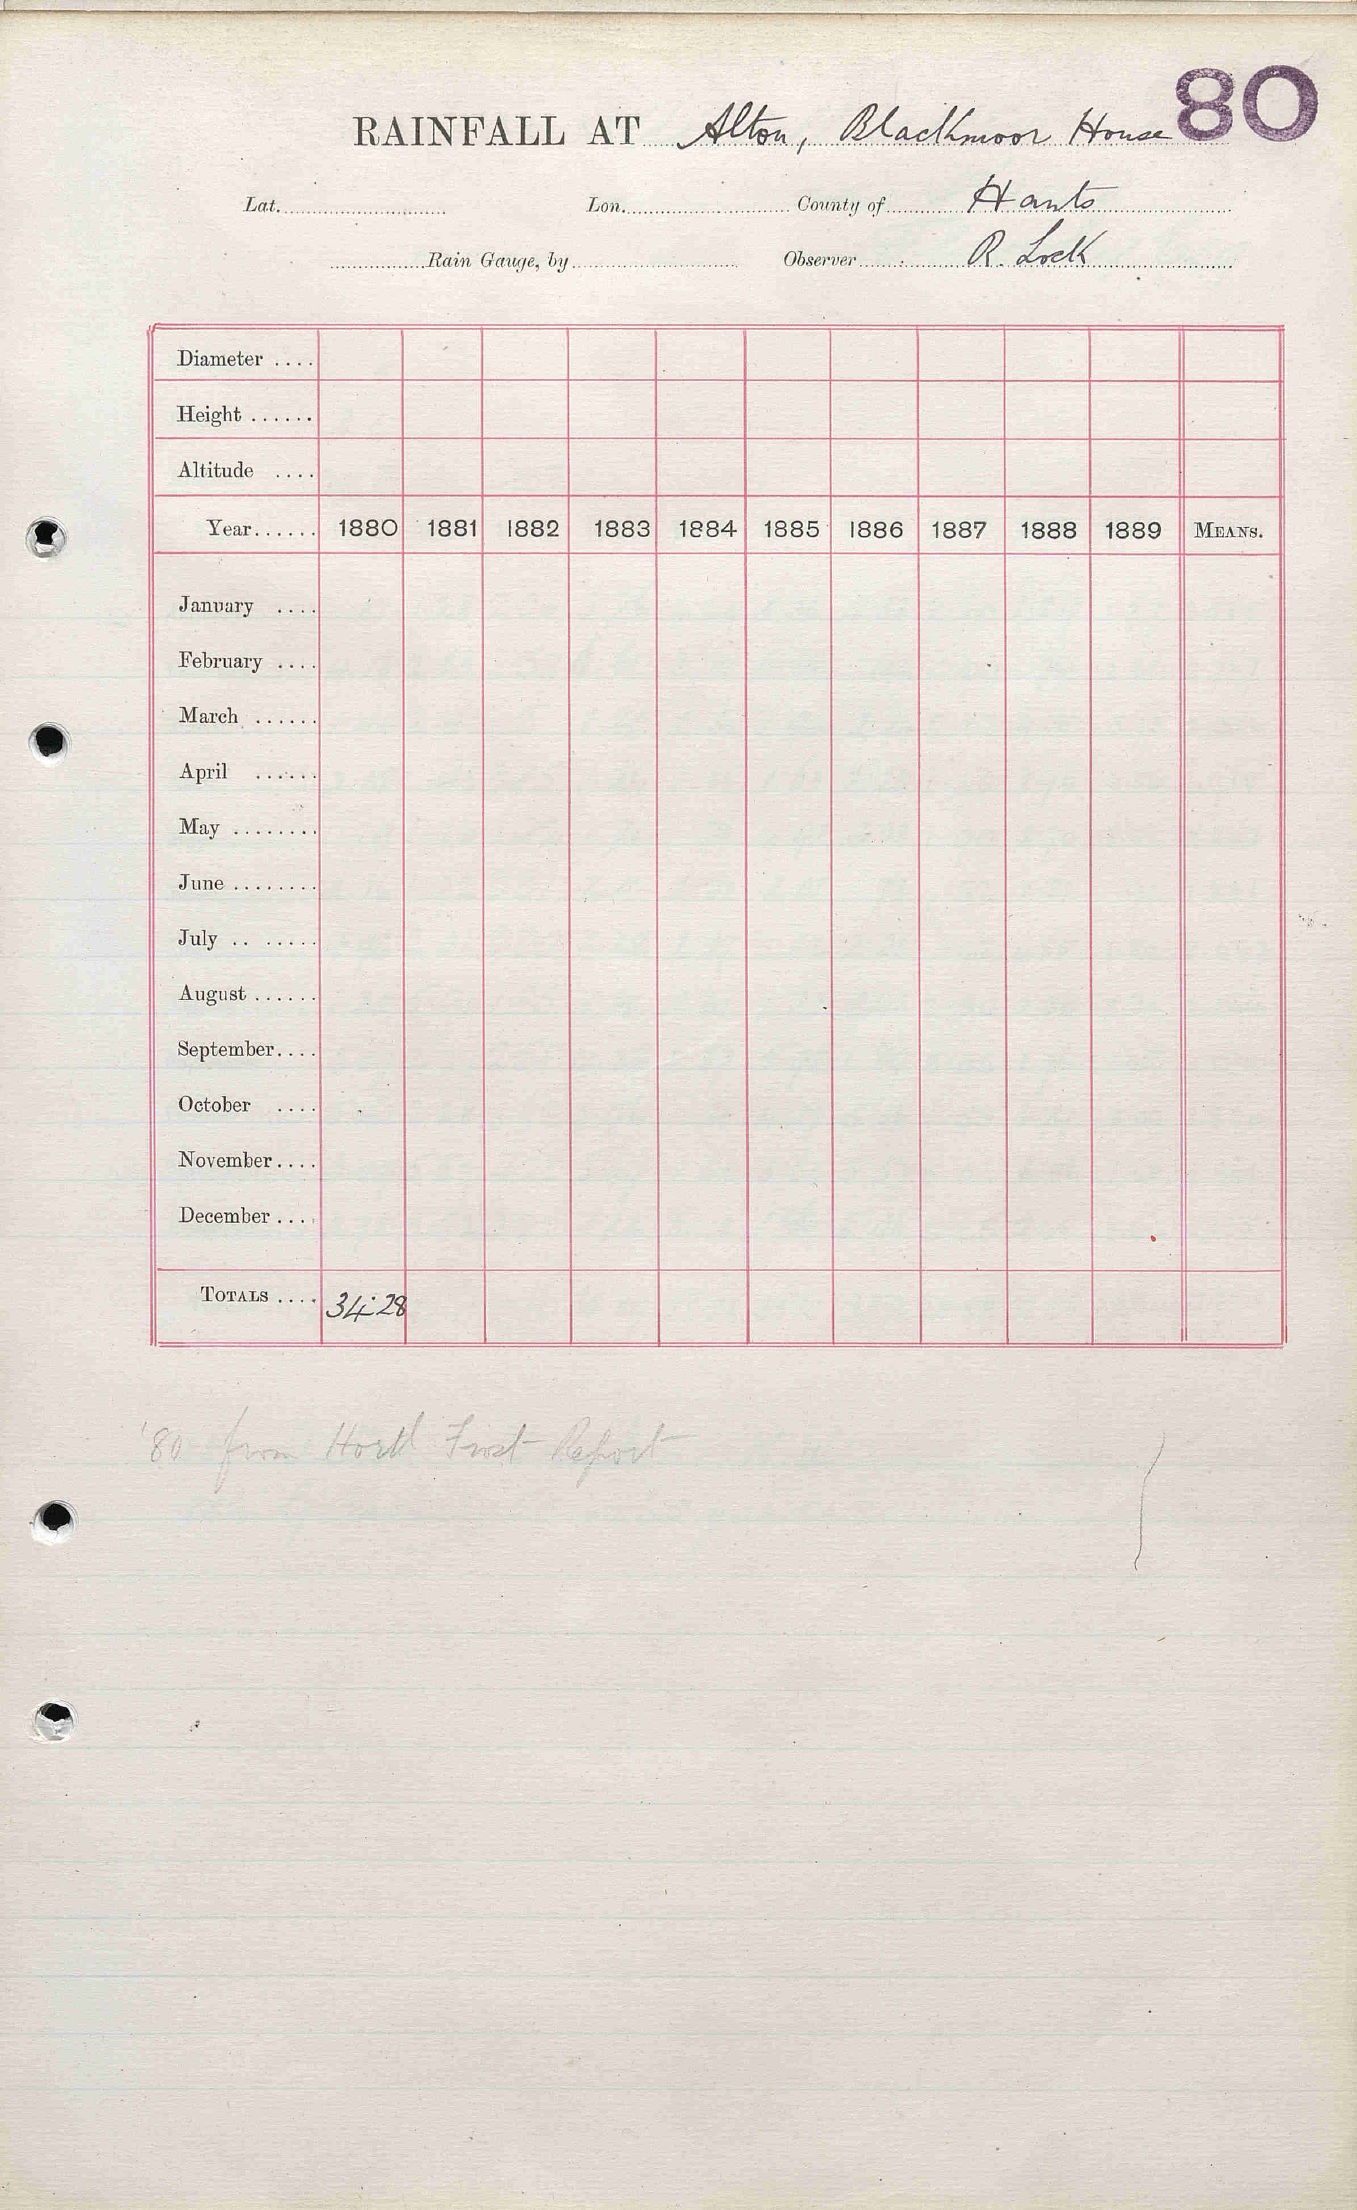 80
RAINFALL AT Alton, Blackmoor House
Lat. Lon. County of Hants
Rain Gauge, by Observer R. Lock
Diameter ....
Height ......
Altitude ....
Year...... 1880 1881 1882 1883 1884 1885 1886 1887 1888 1889 MEANS.
January ....
February ....
March ......
April ......
May ........
June ........
July .. .....
August ......
September....
October ....
November....
December ....
TOTALS .... 34.28
'80 from Hortl Frost Report